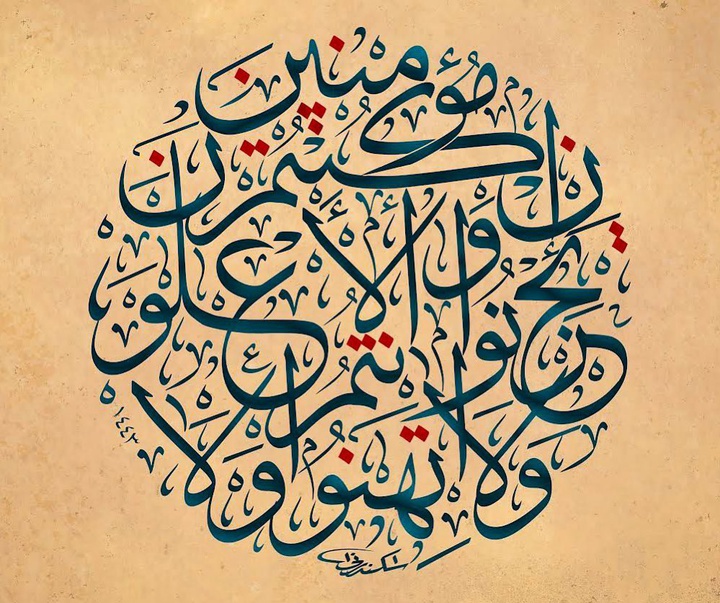 ولا تهنوا ولا
تحزنوا وأنتم الأعلون
إن كنتم
مؤمنين